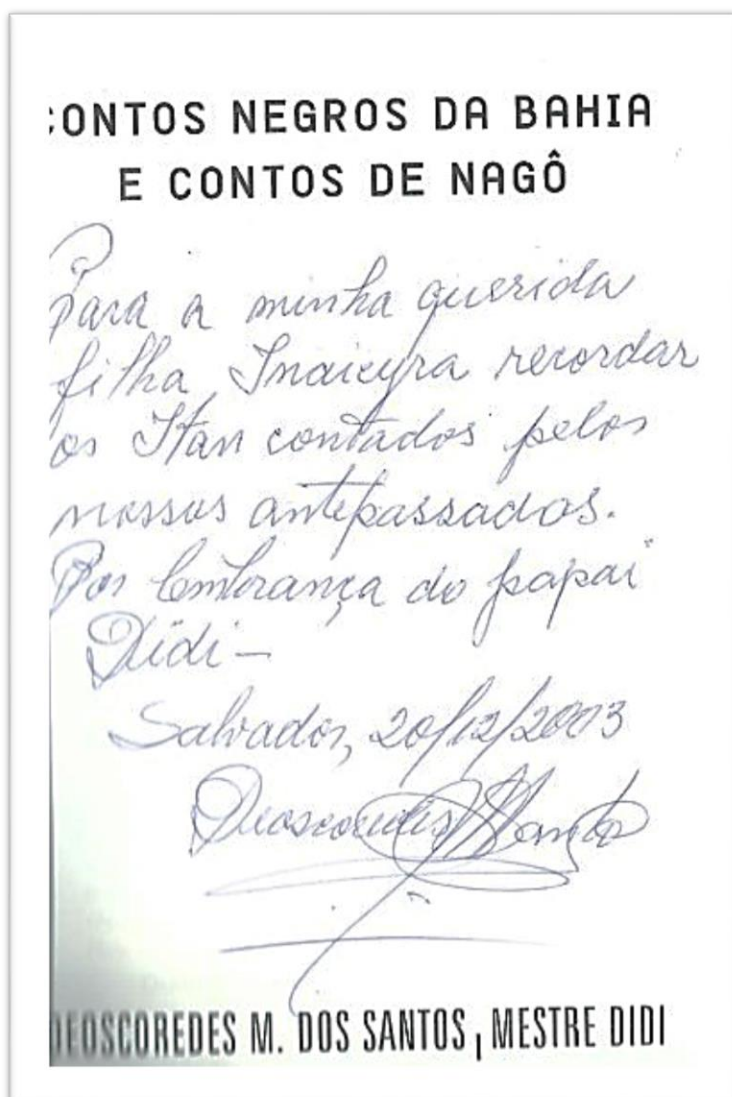 CONTOS NEGROS DA BAHIA
E CONTOS DE NAGÔ
Para a minha querida
filha, Inaicyra recordar
os Itan contados pelos
nossos antepassados.
Por lembrança do papai
Didi—
Salvador, 20/12/2003
Deoscoredes M Santos
DEOSCOREDES M. DOS SANTOS, MESTRE DIDI